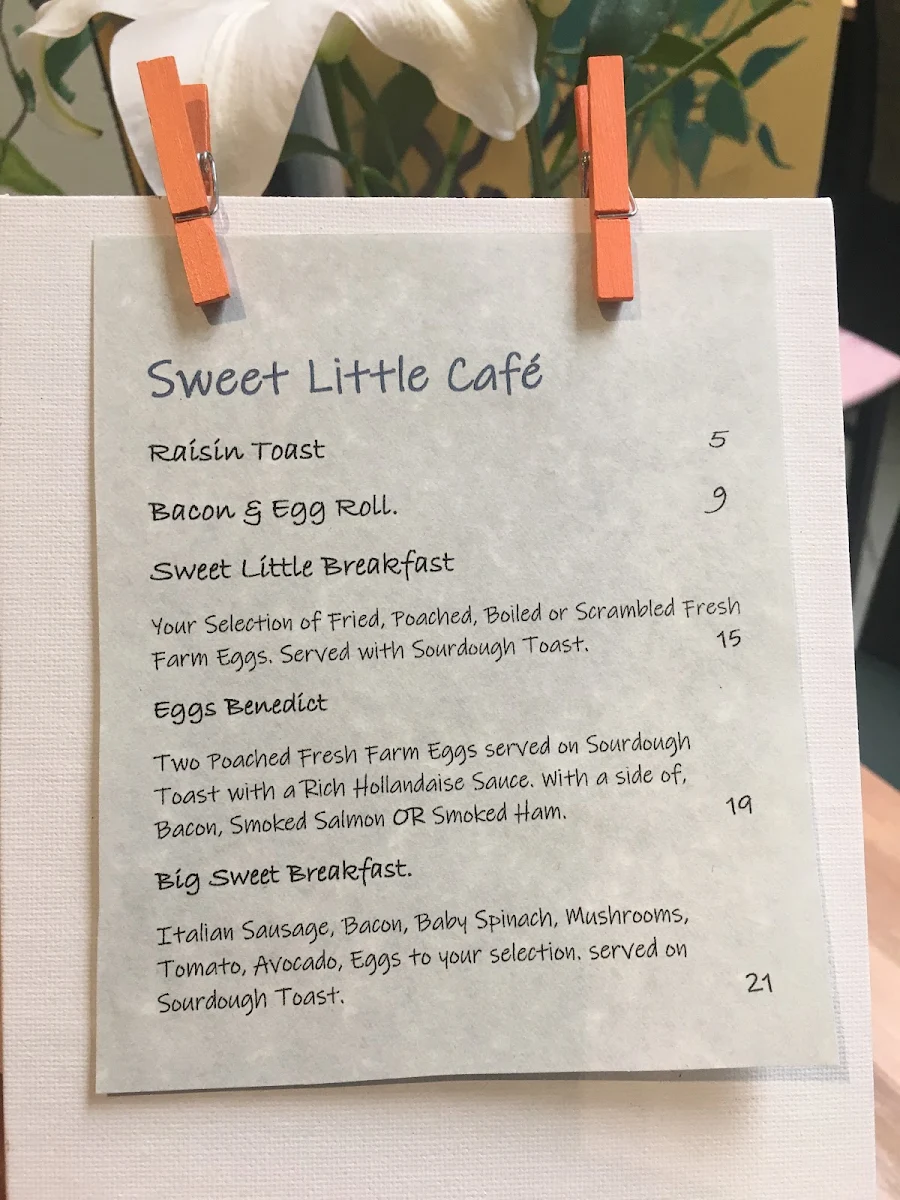 Sweet Little Café
Raisin Toast 5
Bacon & Egg Roll. 9
Sweet Little Breakfast
Your Selection of Fried, Poached, Boiled or Scrambled Fresh
Farm Eggs. Served with Sourdough Toast. 15
Eggs Benedict
Two Poached Fresh Farm Eggs served on Sourdough
Toast with a Rich Hollandaise Sauce. With a side of,
Bacon, Smoked Salmon OR Smoked Ham. 19
Big Sweet Breakfast.
Italian Sausage, Bacon, Baby Spinach, Mushrooms,
Tomato, Avocado, Eggs to your selection. served on
Sourdough Toast. 21